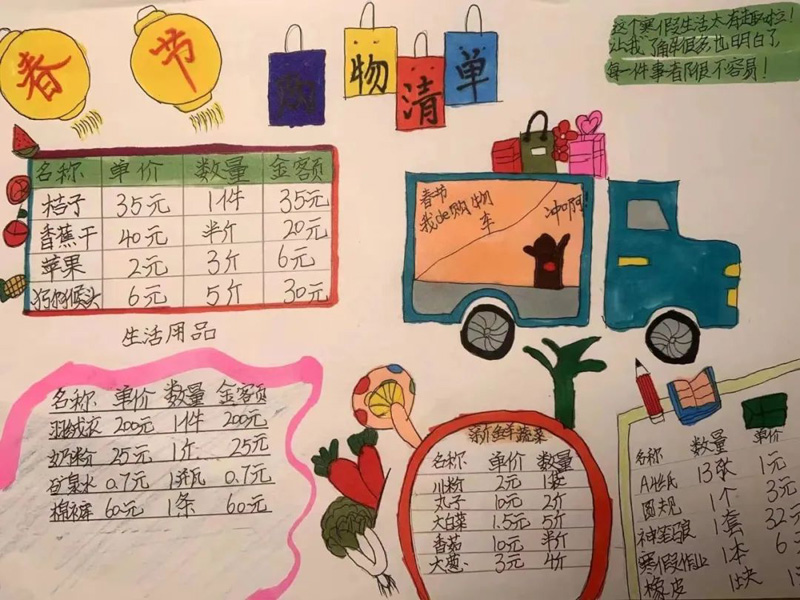 春节
购物清单
这个寒假生活太有趣啦!
让我了解很多也明白了
每一件事都很不容易!
名称 单价 数量 金额
桔子 35元 1件 35元
香蕉干 40元 半斤 20元
苹果 2元 3斤 6元
猴头 6元 5斤 30元
春节
我de购物
车
冲啊!
生活用品
名称 单价 数量 金额
羽绒衣 200元 1件 200元
奶粉 25元 1斤 25元
矿泉水 0.7元 1瓶 0.7元
棉裤 60元 1条 60元
新鲜蔬菜
名称 单价 数量
川粉 2元 1袋
丸子 10元 2斤
大白菜 1.5元 5斤
香菇 10元 半斤
大葱 3元 4斤
名称 数量 单价
A4纸 13张 1元
圆规 1个 3元
神笔马良 1套 32元
寒假作业 1本 6
橡皮 1块